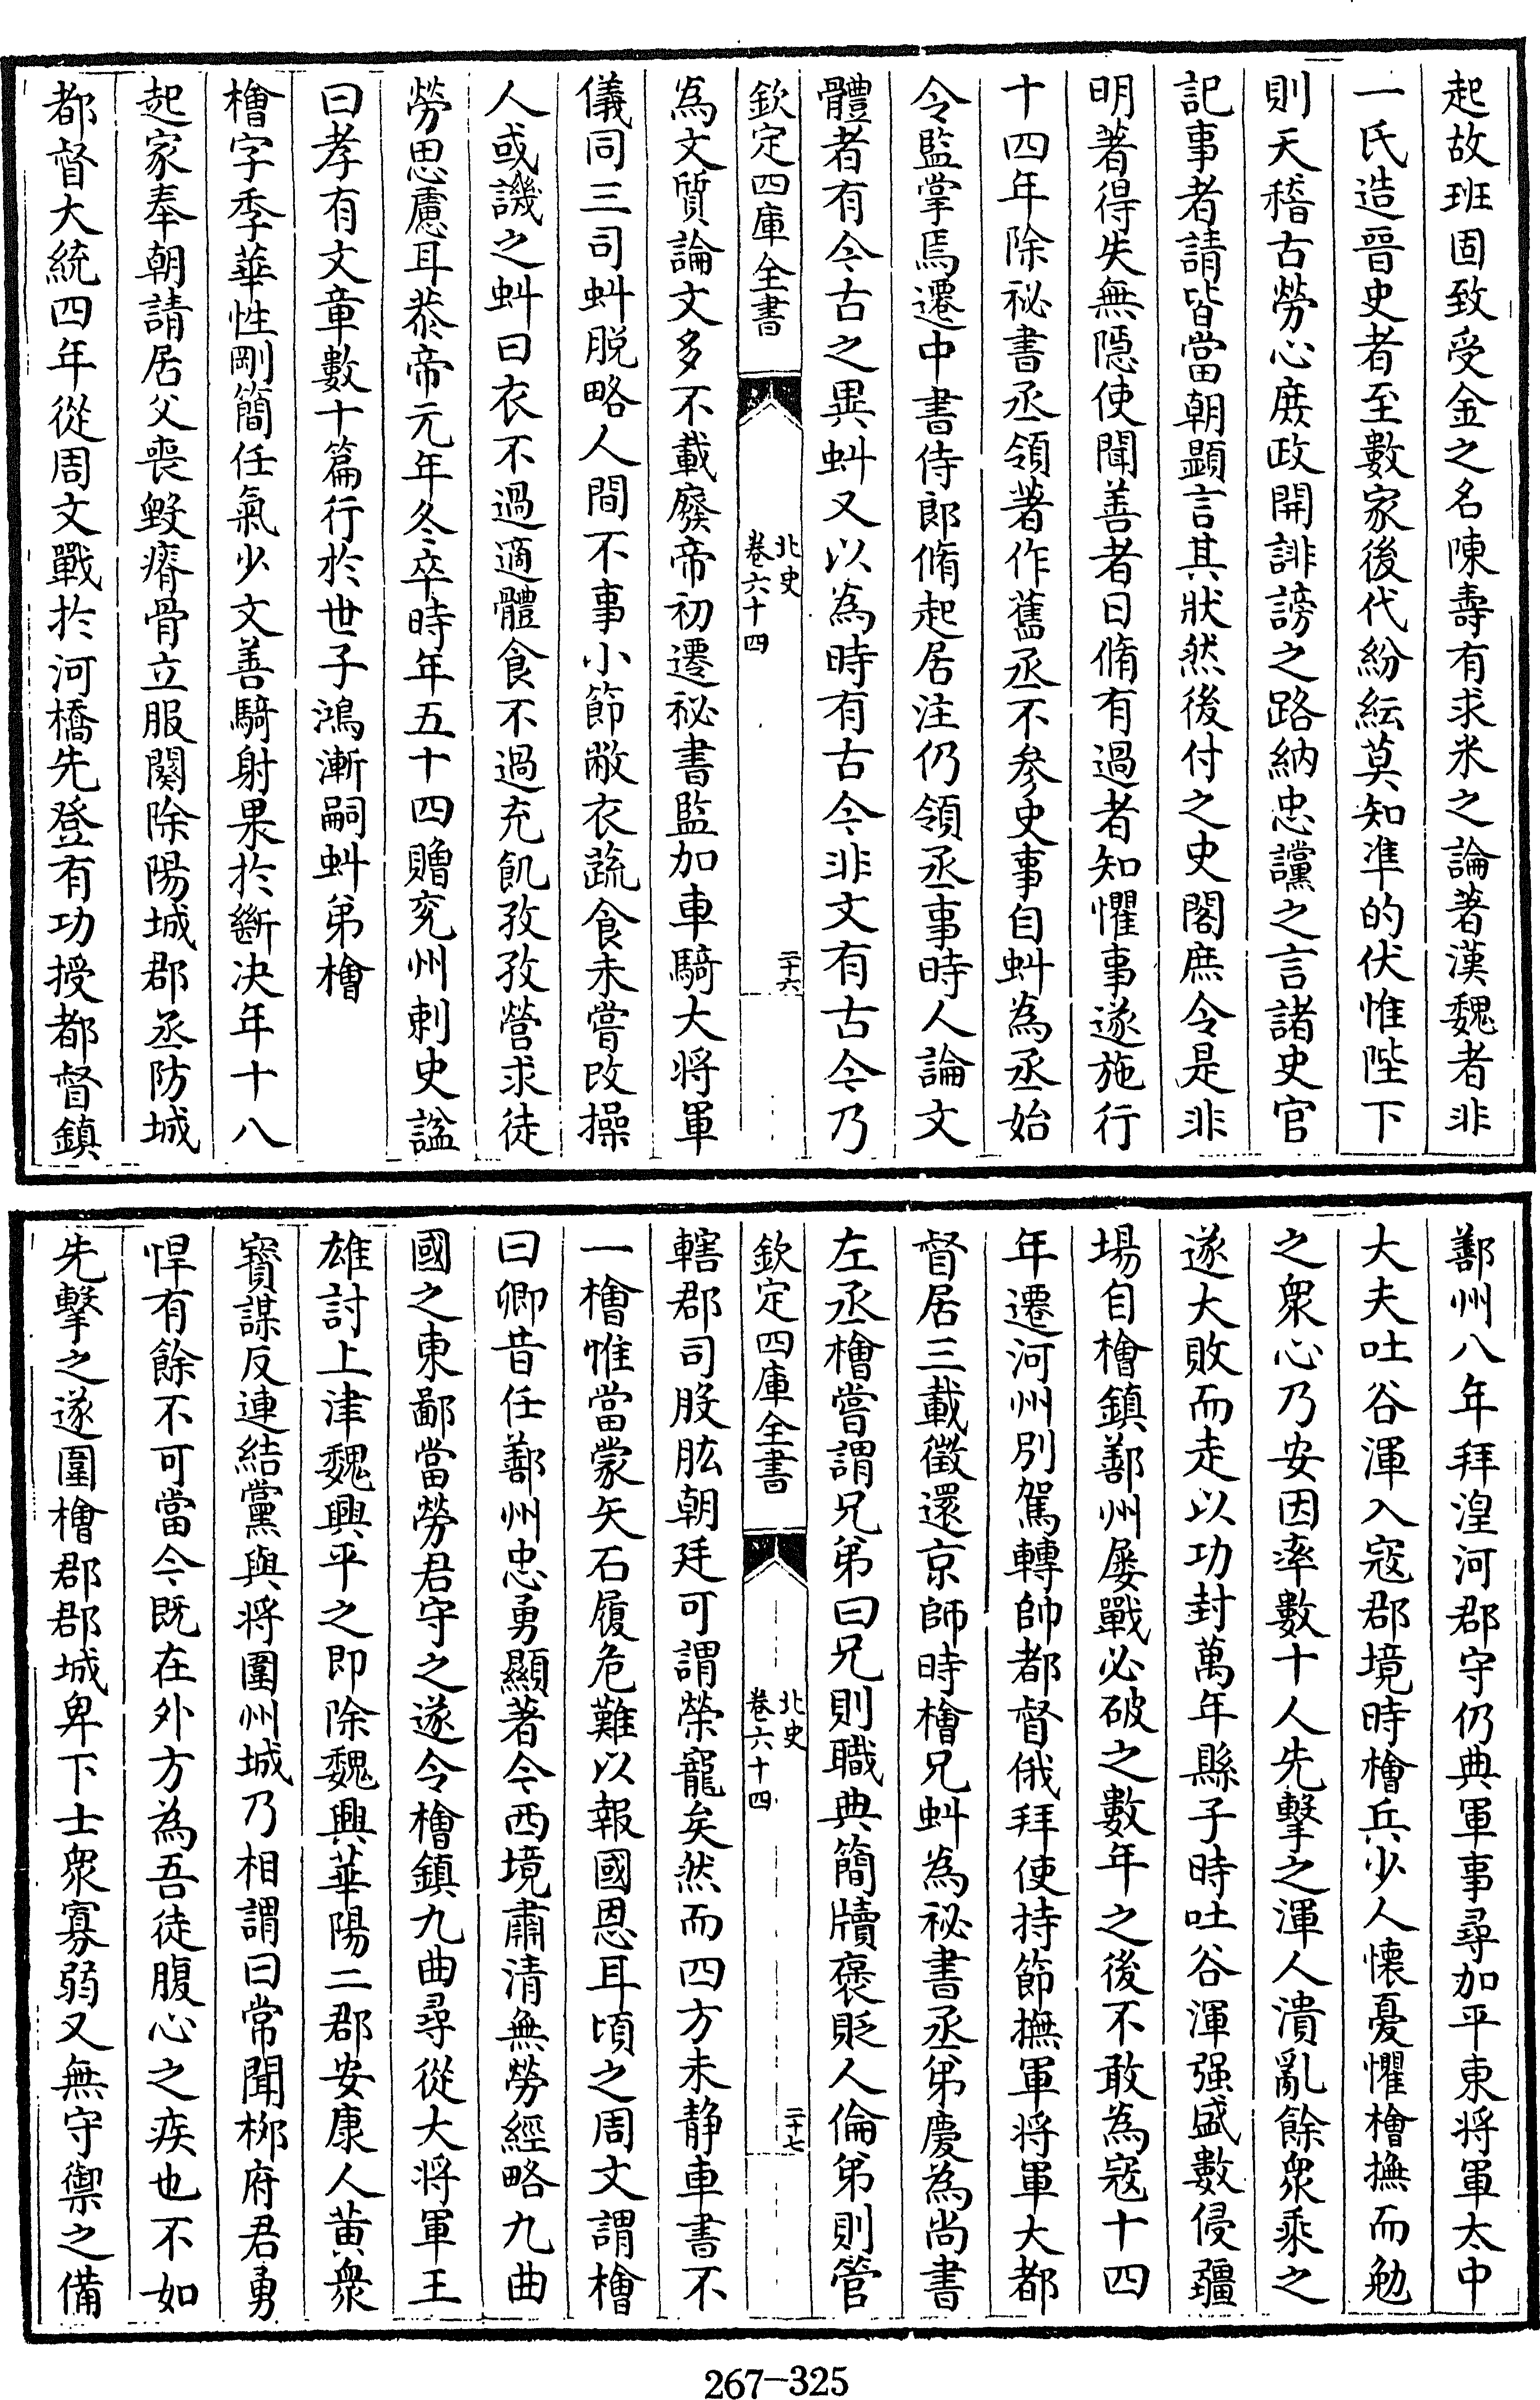 起故班固致受金之名陳壽有求米之論著漢魏者非
一氏造晉史者至數家後代紛紜莫知準的伏惟陛下
則天稽古勞心庶政開誹謗之路納忠讜之言諸史官
記事者請皆當朝顯言其狀然後付之史閣庶令是非
明著得失無隱使聞善者日脩有過者知懼事遂施行
十四年除祕書丞領著作舊丞不參史事自虯為丞始
令監掌焉遷中書侍郎脩起居注仍領丞事時人論文
體者有今古之異虯又以為時有古今非文有古今乃
欽定四庫全書
北史
卷六十四
二十六
為文質論文多不載廢帝初遷祕書監加車騎大將軍
儀同三司虯脱略人間不事小節敝衣蔬食未嘗改操
人或譏之虯曰衣不過適體食不過充飢孜孜營求徒
勞思慮耳恭帝元年冬卒時年五十四贈兖州刺史諡
曰孝有文章數十篇行於世子鴻漸嗣虯弟檜
檜字季華性剛簡任氣少文善騎射果於斷决年十八
起家奉朝請居父喪毀瘠骨立服闋除陽城郡丞防城
都督大統四年從周文戰於河橋先登有功授都督鎮
鄯州八年拜湟河郡守仍典軍事尋加平東將軍太中
大夫吐谷渾入寇郡境時檜兵少人懐憂懼檜撫而勉
之衆心乃安因率數十人先擊之渾人潰亂餘衆乘之
遂大敗而走以功封萬年縣子時吐谷渾强盛數侵疆
場自檜鎮鄯州屢戰必破之數年之後不敢為寇十四
年遷河州別駕轉帥都督俄拜使持節撫軍將軍大都
督居三載徵還京師時檜兄虯為祕書丞弟慶為尚書
左丞檜嘗謂兄弟曰兄則職典簡牘褒貶人倫弟則管
欽定四庫全書
北史
卷六十四
二十七
轄郡司股肱朝廷可謂榮寵矣然而四方未静車書不
一檜惟當蒙矢石履危難以報國恩耳頃之周文謂檜
曰卿昔任鄯州忠勇顯著今西境肅清無勞經略九曲
國之東鄙當勞君守之遂令檜鎮九曲尋從大將軍王
雄討上津魏興平之即除魏興華陽二郡安康人黄衆
寳謀反連結黨與將圍州城乃相謂曰常聞栁府君勇
悍有餘不可當今既在外方為吾徒腹心之疾也不如
先擊之遂圍檜郡郡城卑下士衆寡弱又無守禦之備
267-325